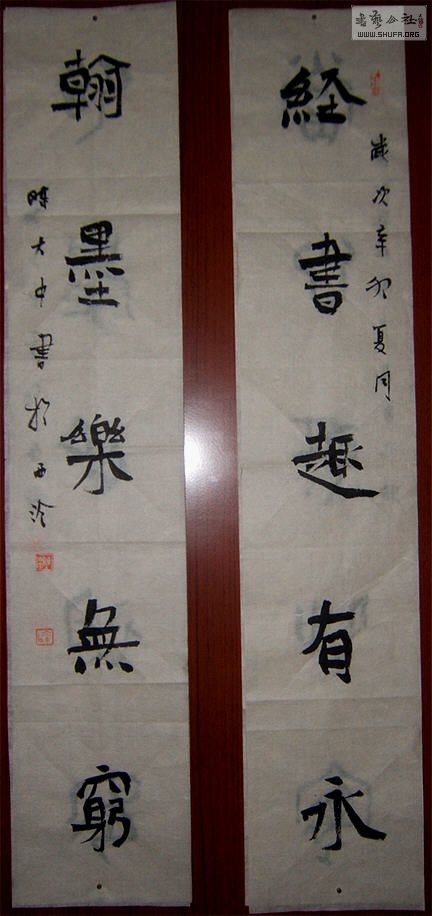 経書趣有永
歲次辛卯夏月
翰墨樂無窮
陳大中書於西泠
書藝公社
WWW.SHUFA.ORG